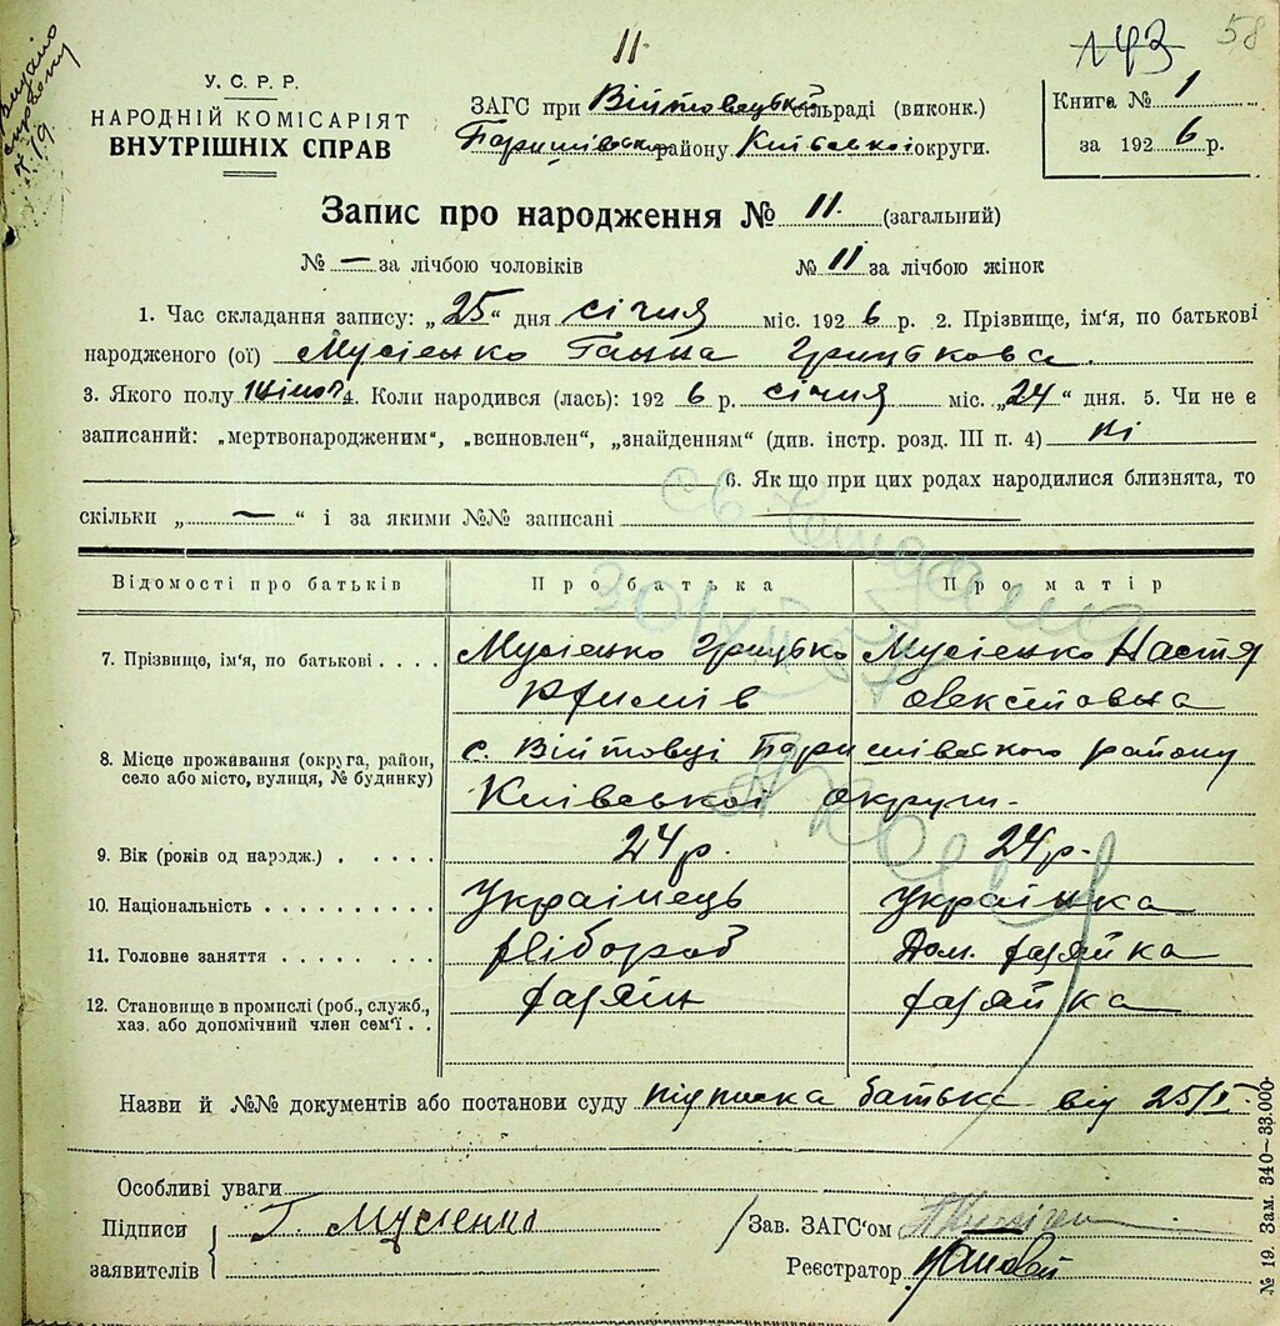 11.
143 58
У. С. Р. Р.
НАРОДНІЙ КОМІСАРІЯТ
ВНУТРІШНІХ СПРАВ
ЗАГС при Війтовецькій сільраді (виконк.)
Баришівськ району Київської округи.
Книга № 1
за 1926 р.
Запис про народження № 11. (загальний)
№ — за лічбою чоловіків № 11 за лічбою жінок
1. Час складання запису: „25“ дня січня міс. 1926 р. 2. Прізвище, ім'я, по батькові
народженого (ої) Мусієнко Ганна Грицькова.
3. Якого полу жіноч 4. Коли народився (лась): 1926 р. січня міс. „24“ дня. 5. Чи не є
записаний: „мертвонародженим“, „всиновлен“, „знайденням“ (див. інстр. розд. III п. 4) ні
6. Як що при цих родах народилися близнята, то
скільки „—“ і за якими №№ записані —
Відомості про батьків Про батька Про матір
7. Прізвище, ім'я, по батькові . . . . Мусієнко Грицько Мусієнко Настя
8. Місце проживання (округа, район,
село або місто, вулиця, № будинку) с. Війтовці Баришівського району
Київської округи.
9. Вік (років од народж.) . . . . . 24 р. 24 р.
10. Національність . . . . . . . . . . Українець Українка
11. Головне заняття . . . . . . . . Хлібороб Дом. хазяйка
12. Становище в промислі (роб., служб.,
хаз. або допомічний член сем'ї . . хазяїн хазяйка
Назви й №№ документів або постанови суду підписка батька від 25/I.
Особливі уваги
Підписи
заявителів Г. Мусіенко
Зав. ЗАГС'ом
Реєстратор
№ 19. Зам. 340—33.000.